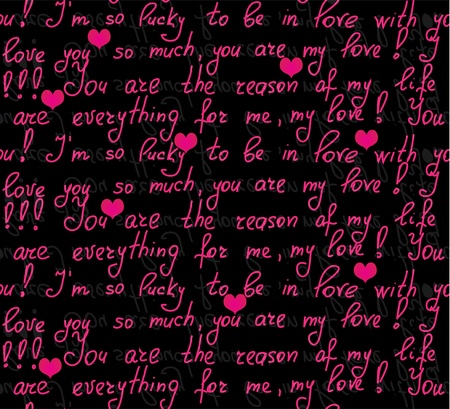 ou! I'm so lucky to be in love with yo
love you so much, you are my love! I
!!! You are the reason of my life
are everything for me, my love! You
ou! I'm so lucky to be in love with yo
love you so much, you are my love! I
!!! You are the reason of my life
are everything for me, my love! You
ou! I'm so lucky to be in love with yo
love you so much, you are my love! I
!!! You are the reason of my life
are everything for me, my love! You